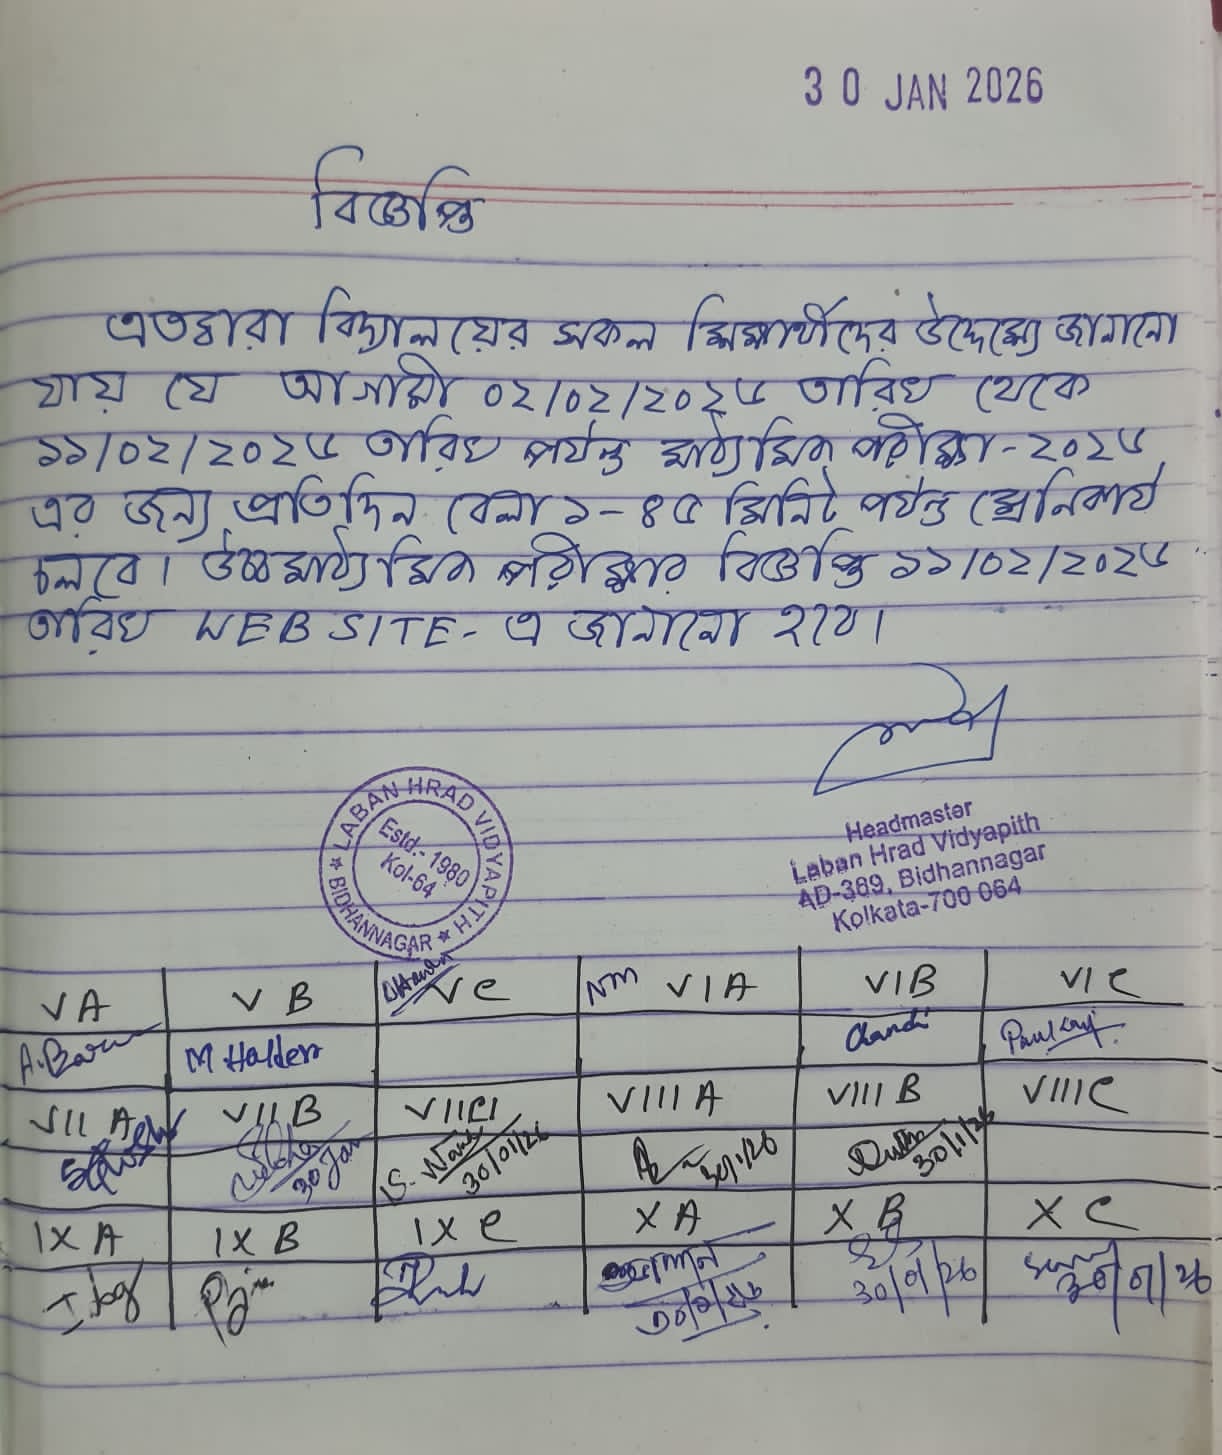 30 JAN 2026
বিজ্ঞপ্তি
এতদ্বারা বিদ্যালয়ের সকল শিক্ষার্থীদের উদ্দেশ্যে জানানো
যায় যে আগামী ০২/০২/২০২৬ তারিখ থেকে
১১/০২/২০২৬ তারিখ পর্যন্ত মাধ্যমিক পরীক্ষা-২০২৬
এর জন্য প্রতিদিন বেলা ১-৪৫ মিনিট পর্যন্ত শ্রেনিকার্য
চলবে। উচ্চমাধ্যমিক পরীক্ষার বিজ্ঞপ্তি ১১/০২/২০২৬
তারিখ WEB SITE-এ জানানো হবে।
LABAN HRAD VIDYAPITH
BIDHANNAGAR
Estd.- 1980
Kol-64
Headmaster
Laban Hrad Vidyapith
AD-389, Bidhannagar
Kolkata-700 064
VA VB VC NM VIA VIB VIC
M Halder Chandi
VIIA VIIB VIIC VIIIA VIIIB VIIIC
30 Jan 30/01/26 30/1/26 30/1/26
IXA IXB IXC XA XB XC
30/01/26 30/01/26